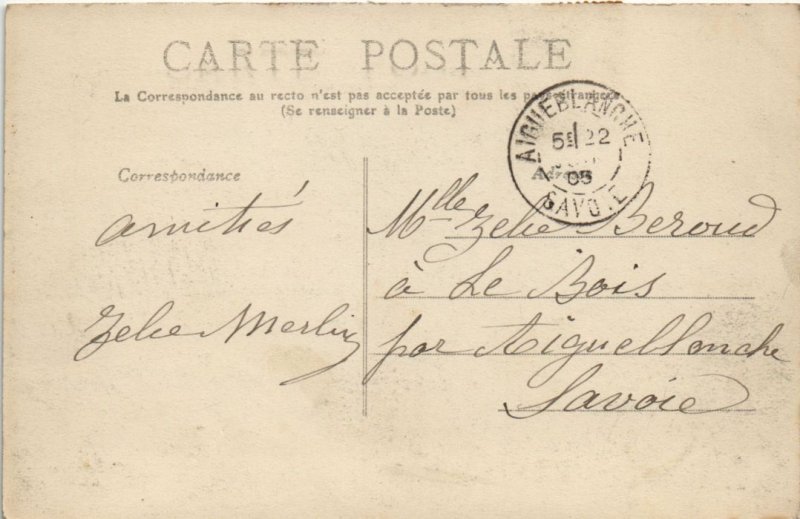 CARTE POSTALE
La Correspondance au recto n'est pas acceptée par tous les pays étrangers
(Se renseigner à la Poste)
AIGUEBLANCHE
5E 22
05
SAVOIE
Correspondance
Adresse
amitiés
Zelie Merlin
Mlle Zelie Beroud
à Le Bois
par Aigueblanche
Savoie